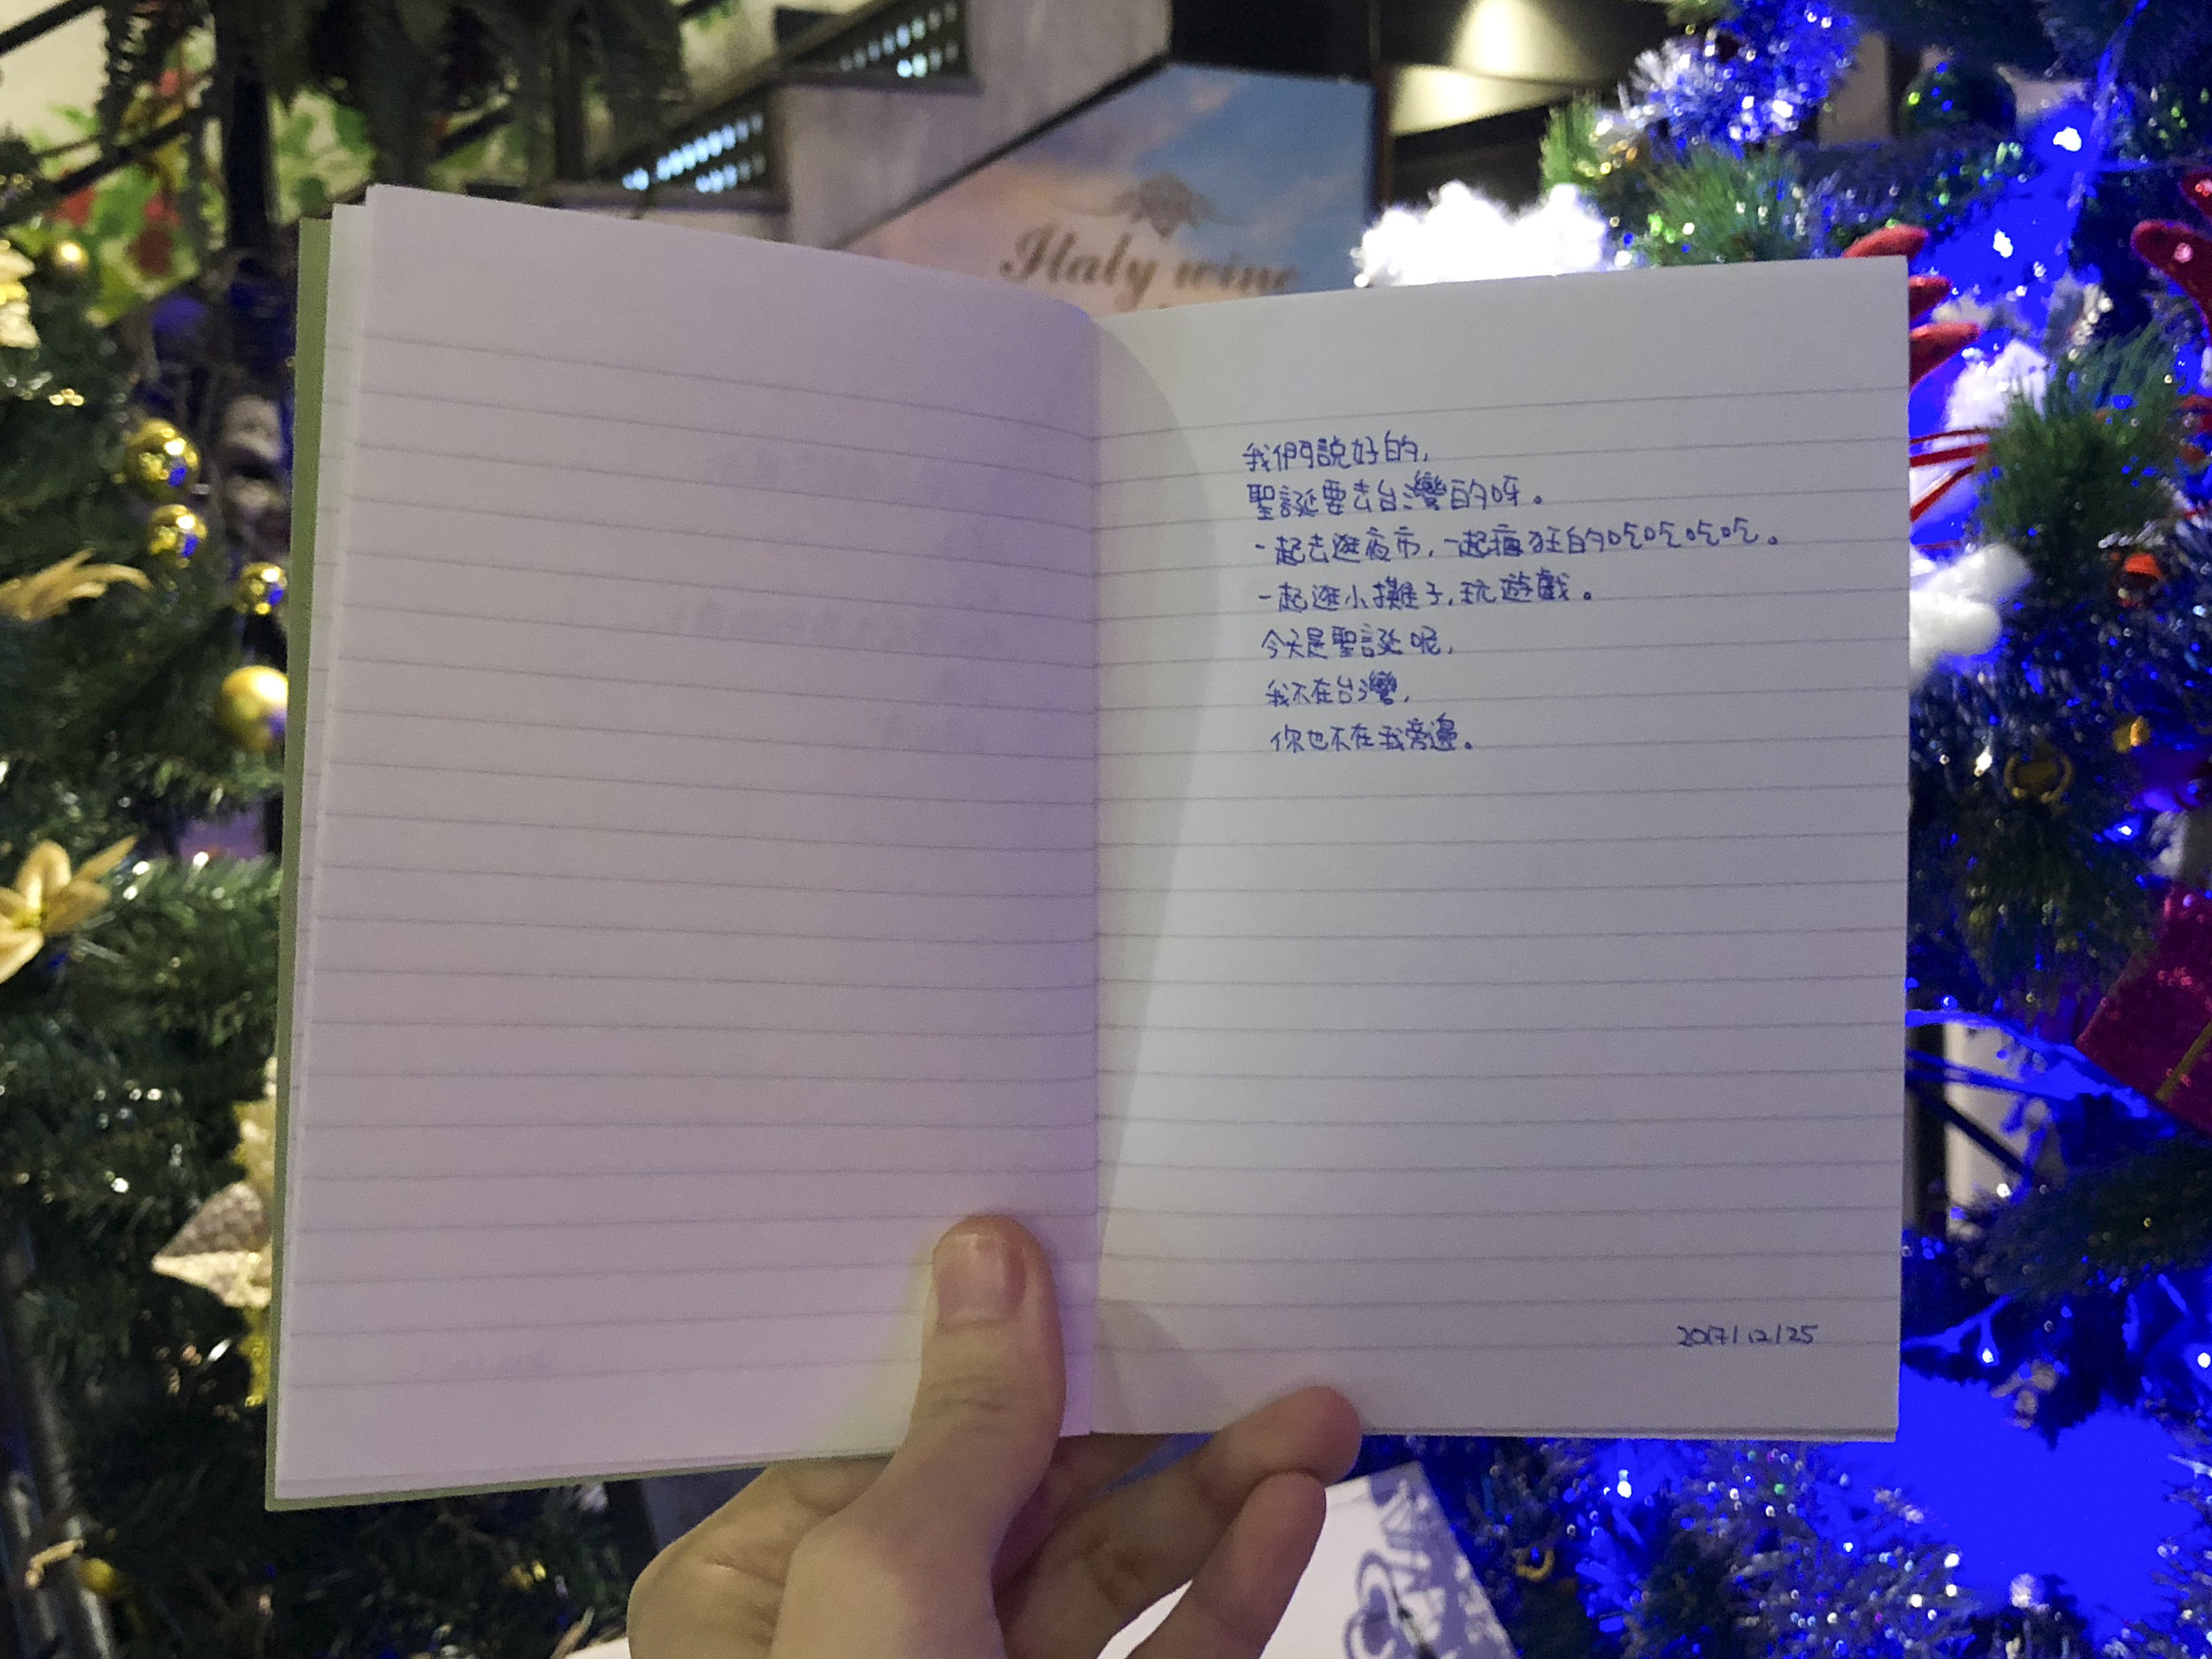 Italy wine
我們說好的,
聖誕要去台灣的呀。
一起去逛夜市,一起瘋狂的吃吃吃吃。
一起逛小攤子,玩遊戲。
今天是聖誕呢,
我不在台灣,
你也不在我旁邊。
2017/12/25